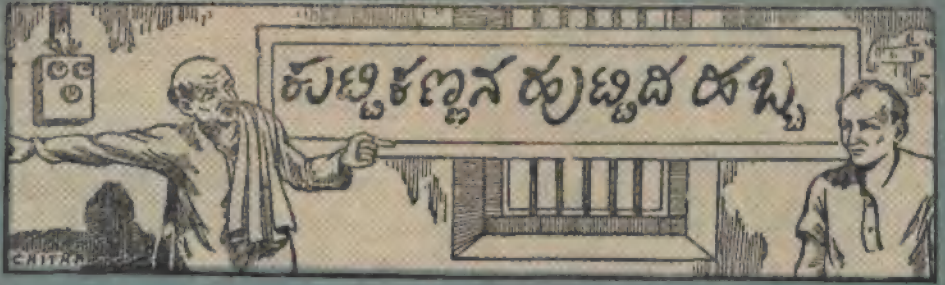 ಕುಟ್ಟಿಕಣ್ಣನ ಹುಟ್ಟಿದ ಹಬ್ಬ
CHITRA